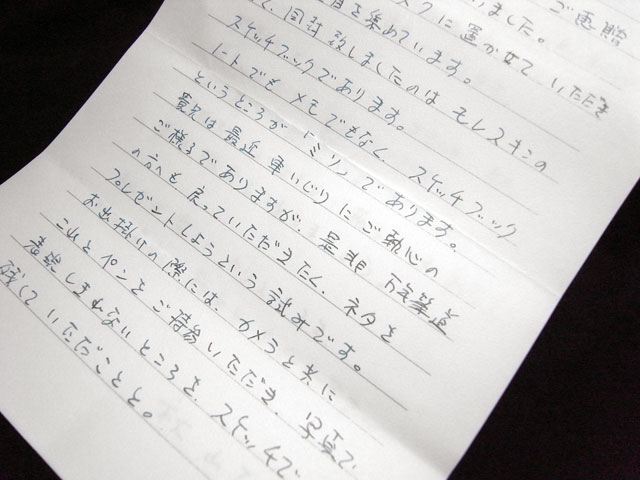 ご恵贈
いました。
スクに置かせて いただき
目を集めています。
て、同封致しましたのは モレスキンの
スケッチブックであります。
ノートでも メモでもなく、スケッチブック
というところが「ミソ」であります。
貴兄は最近 車いじりに ご執心の
ご様子でありますが、是非 万年筆道
の方へも 戻っていただきたく、ネタを
プレゼントしようという 試みです。
お出掛けの際には、カメラと共に
これとペンとご持参いただき、写真で
表現しきれないところを、スケッチで
残していただこうと。